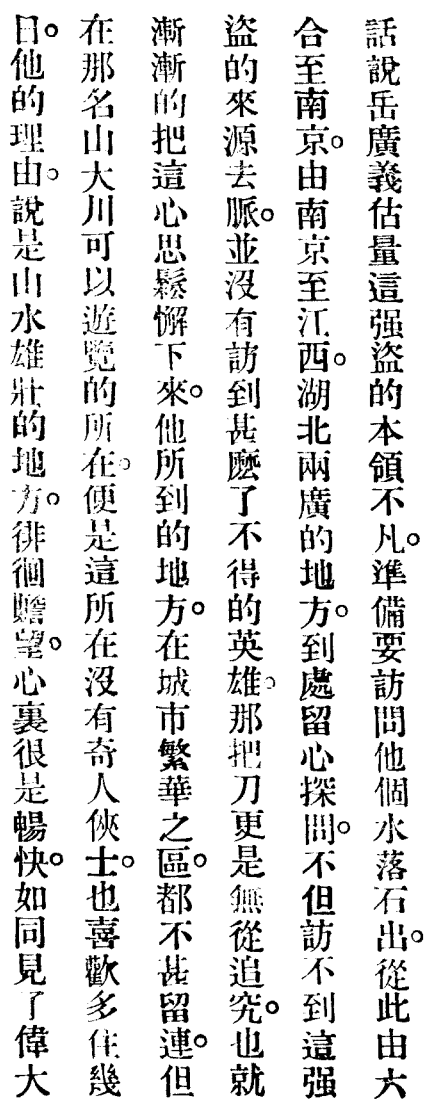 話說岳廣義估量這强盜的本領不凡。準備要訪問他個水落石出。從此由六
合至南京。由南京至江西。湖北兩廣的地方。到處留心探問。不但訪不到這强
盜的來源去脈。並沒有訪到甚麽了不得的英雄。那把刀更是無從追究。也就
漸漸的把這心思鬆懈下來。他所到的地方。在城市繁華之區。都不甚留連。但
在那名山大川可以遊覽的所在。便是這所在沒有奇人俠士。也喜歡多住幾
日。他的理由。說是山水雄壯的地方。徘徊瞻望。心裏很是暢快。如同見了偉大